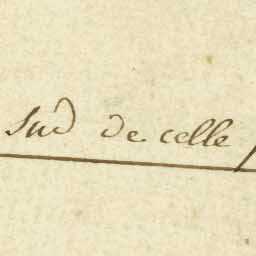 Sud de celle